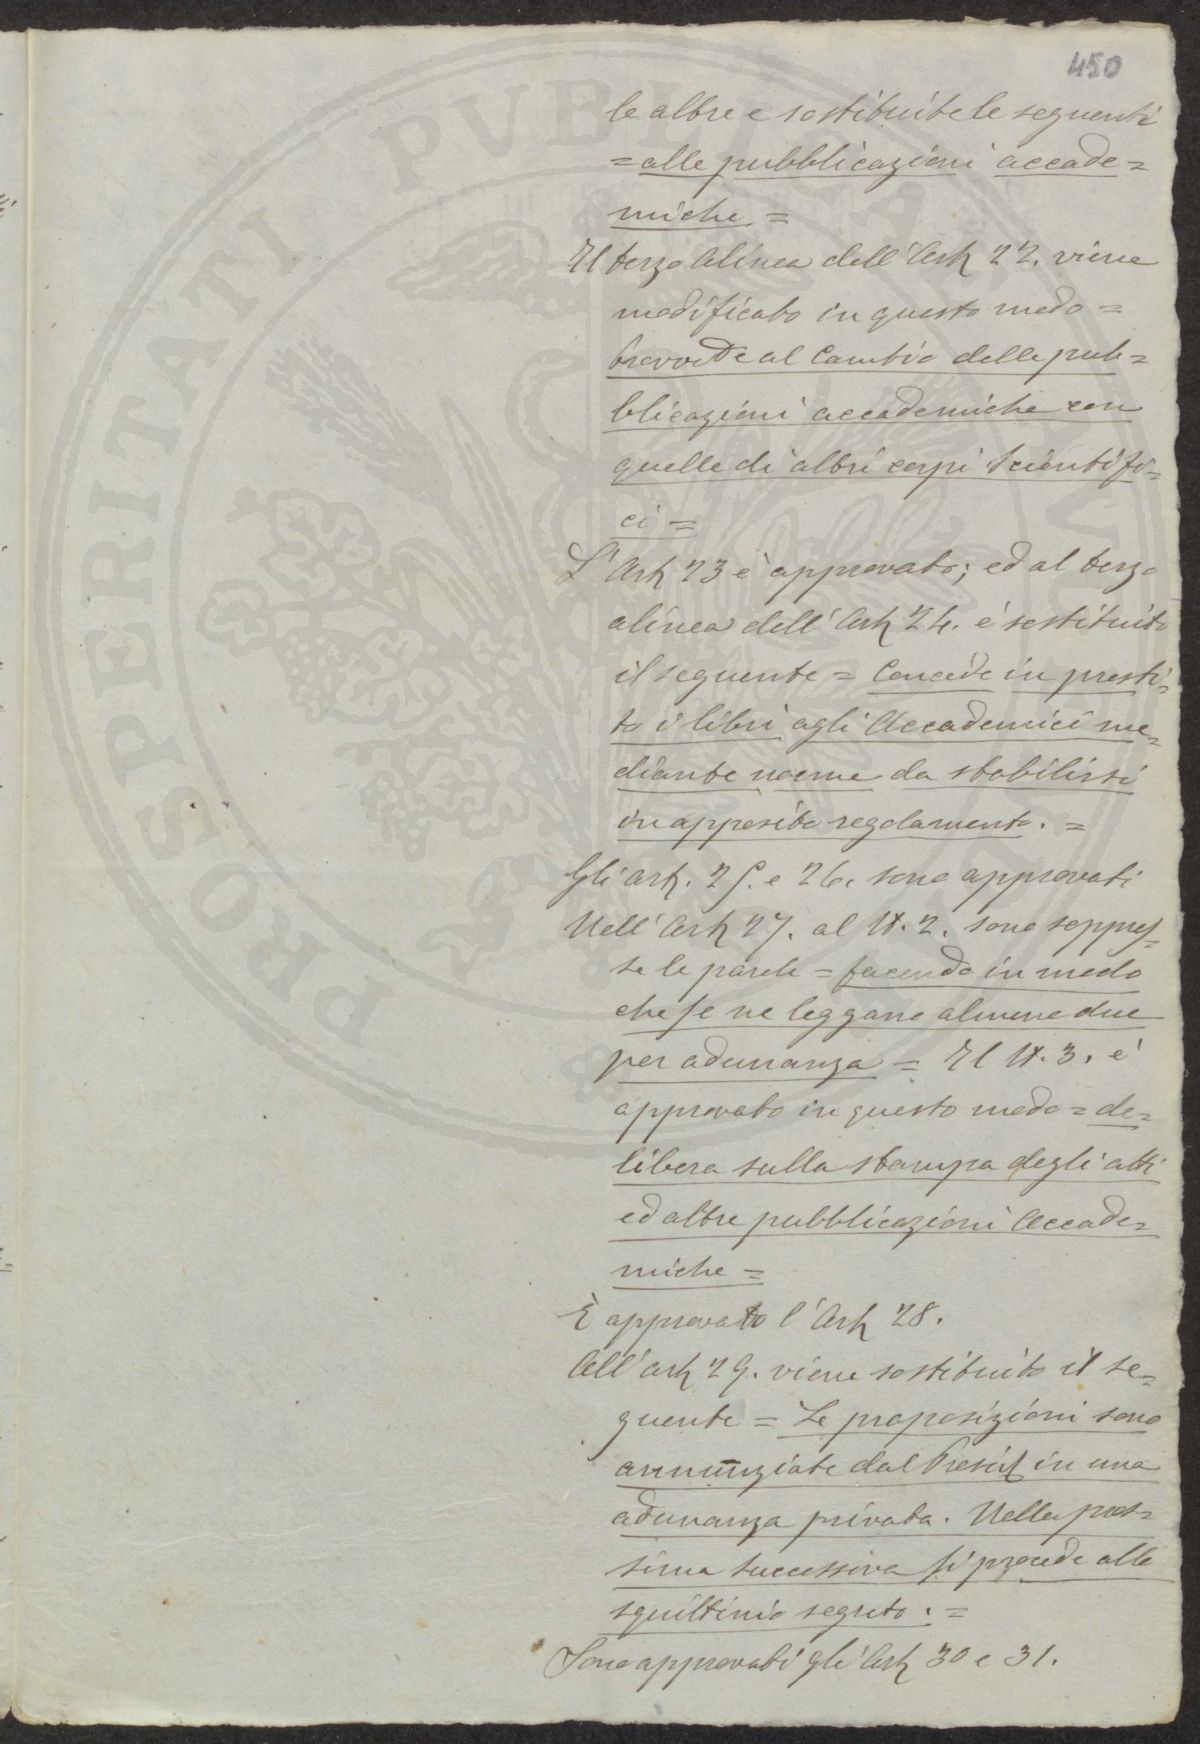 450
le altre e sostituite le seguenti
= alle pubblicazioni accade=
miche =
Il terzo alinea dell'Art 22. viene
modificato in questo modo =
Provvede al Cambio delle pub=
blicazioni accademiche con
quelle di altri corpi scientifi=
ci =
L'Art 23 è approvato; ed al terzo
alinea dell'Art 24. è sostituito
il seguente = Concede in presti=
to i libri agli Accademici me=
diante norme da stabilirsi
in apposito regolamento. =
Gli art. 25. e 26. sono approvati
Nell'Art 27. al N. 2. sono soppres=
se le parole = facendo in modo
che se ne leggano almeno due
per adunanza = Il N. 3. è
approvato in questo modo = de=
libera sulla stampa degli atti
ed altre pubblicazioni Accade=
miche =
È approvato l'Art 28.
All'art 29. viene sostituito il se=
guente = Le proposizioni sono
annunziate dal Presid in una
adunanza privata. Nella pros=
sima successiva si procede allo
squittinio segreto. =
Sono approvati gli Art 30 e 31.
PROSPERITATI PVBLICAE